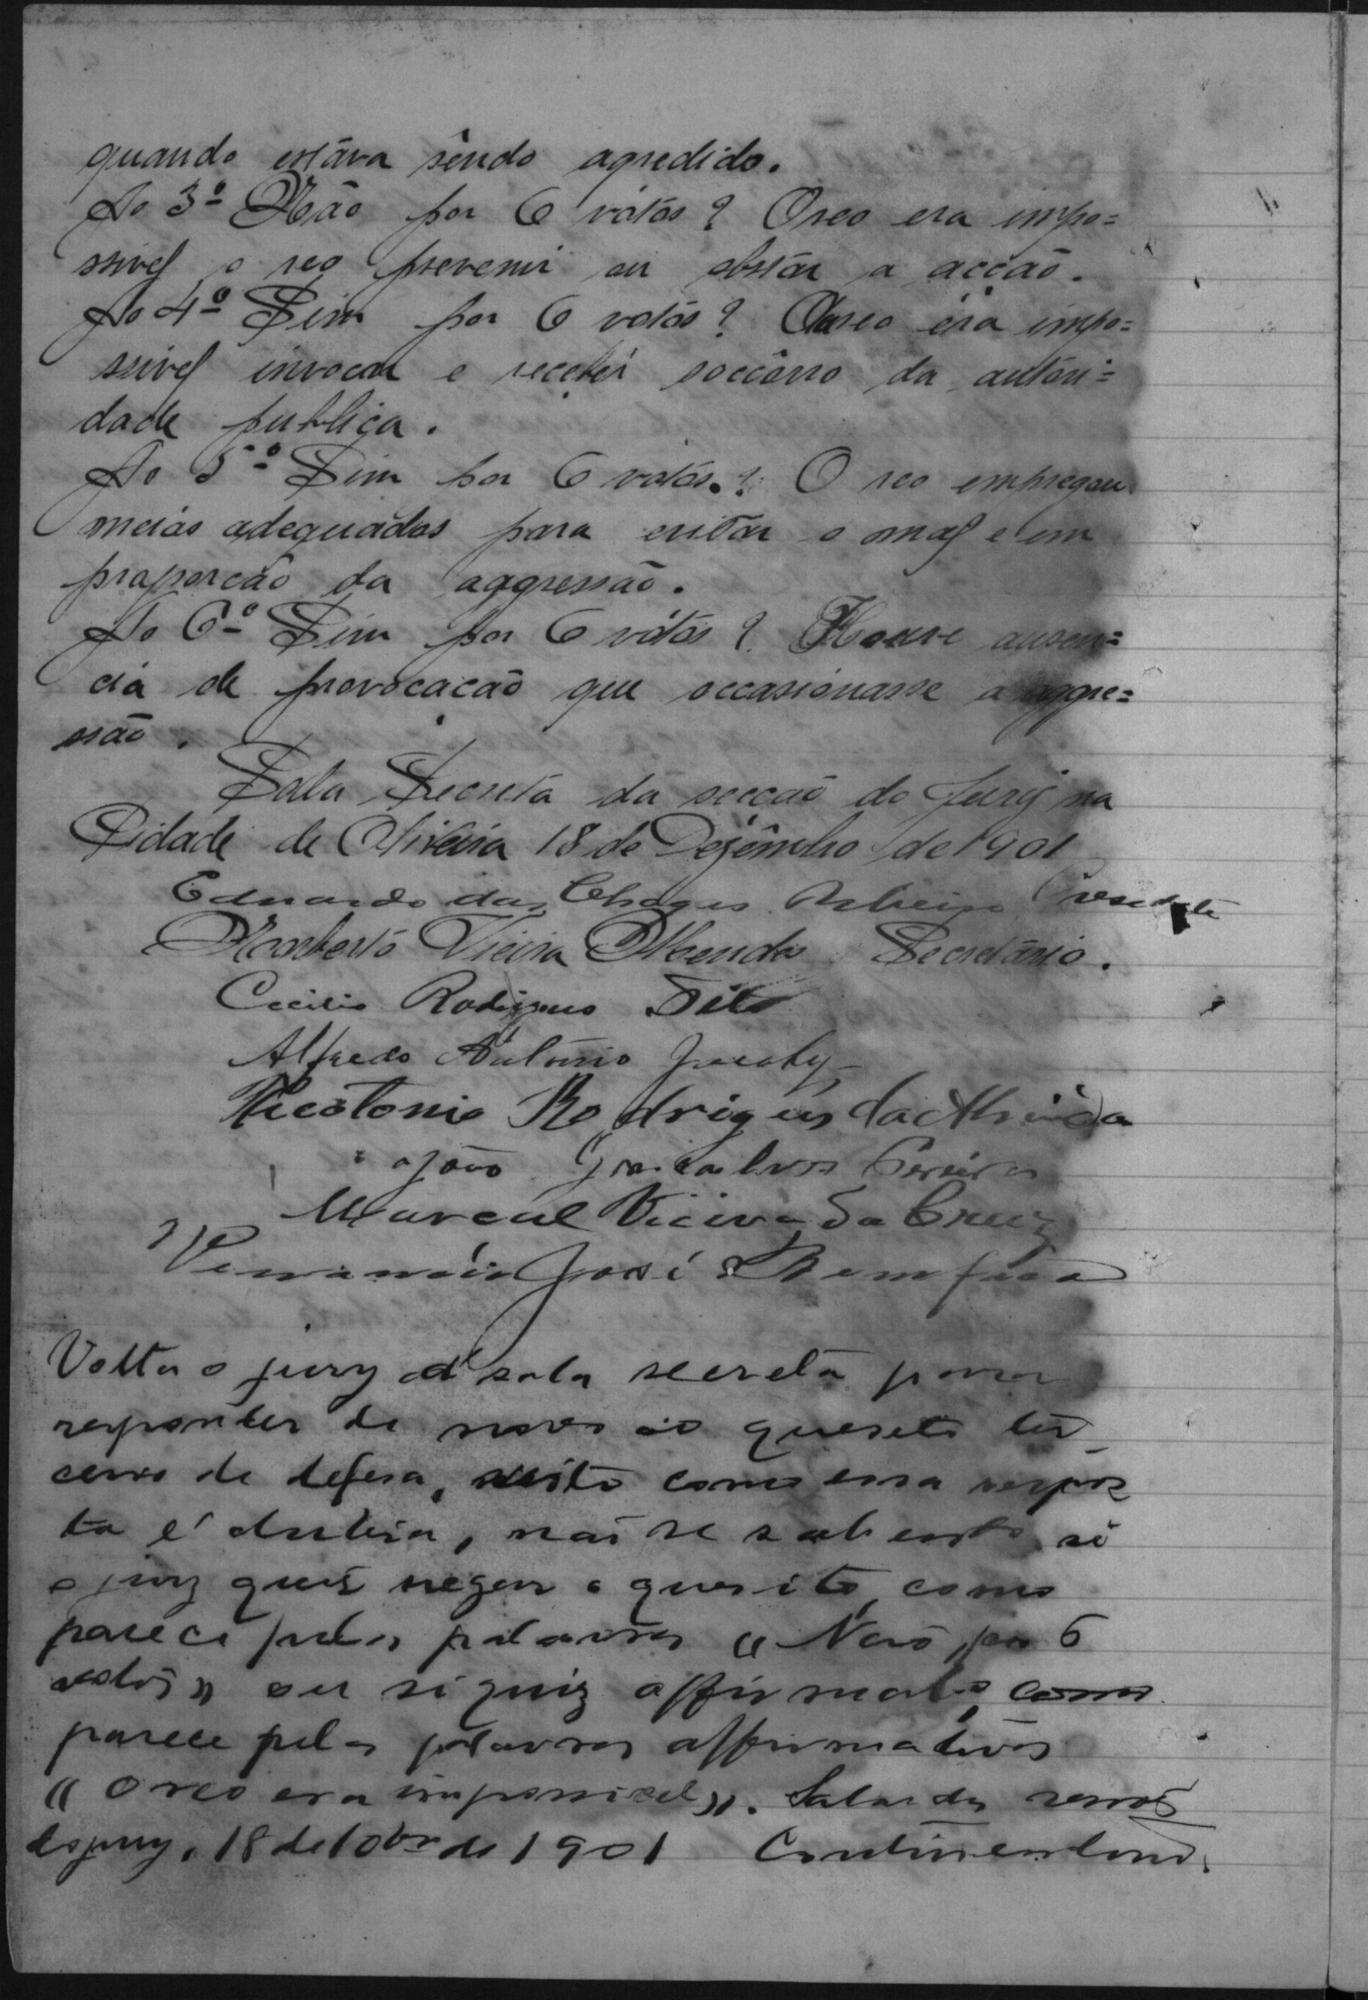 quando estáva sêndo agredido.
Ao 3º Não por 6 vótos? O reo era impo=
ssivel o reo prevenir ou obstár a acção.
Ao 4º Sim por 6 votos? O reo éra impo=
ssivel invocar e receber soccôrro da autóri=
dade publica.
Ao 5º Sim por 6 votos.? O reo empregou
meios adequados para evitar o mal e em
proporcão da aggressão.
Ao 6º Sim por 6 vótos? Houve ausen=
cia de provocacão que occasionasse a aggre=
ssão.
Sala Secreta da secção do Jury na
Cidade de Oliveira 18 de Dezêmbro de 1901
Eduardo das Chagas Ribeiro Presidente
Norberto Vieira Secretário.
Cecilio Rodrigues
Alfredo Antonio
Theotonio Rodrigues
João Gonçalves Pereira
Marcal Vieira da Cruz
Venancio José
Volta o jury á sala secreta para
responder de novo ao quesito ter-
ceiro de defesa, visto como essa respos
ta é dubia, não se sabendo si
o jury quiz negar o quesito, como
parece pelas palavras « Não por 6
votos» ou si quiz affirmal-o, como
parece pelas palavras affirmativas
« O reo era impossivel». Sala das
do jury, 18 de 10bro de 1901